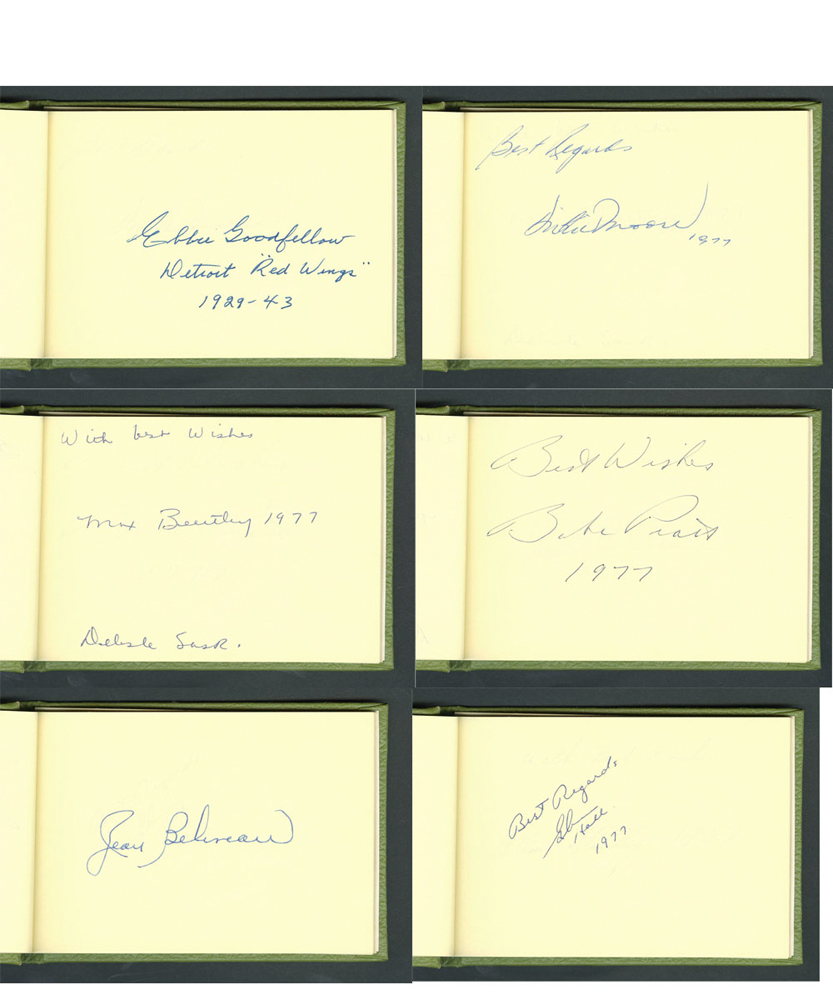 Ebbie Goodfellow
Detroit "Red Wings"
1929-43
Best Regards
Dickie Moore
1977
With best Wishes
Max Bentley 1977
Delisle Sask.
Best Wishes
Babe Pratt
1977
Jean Beliveau
Best Regards
Glenn Hall
1977